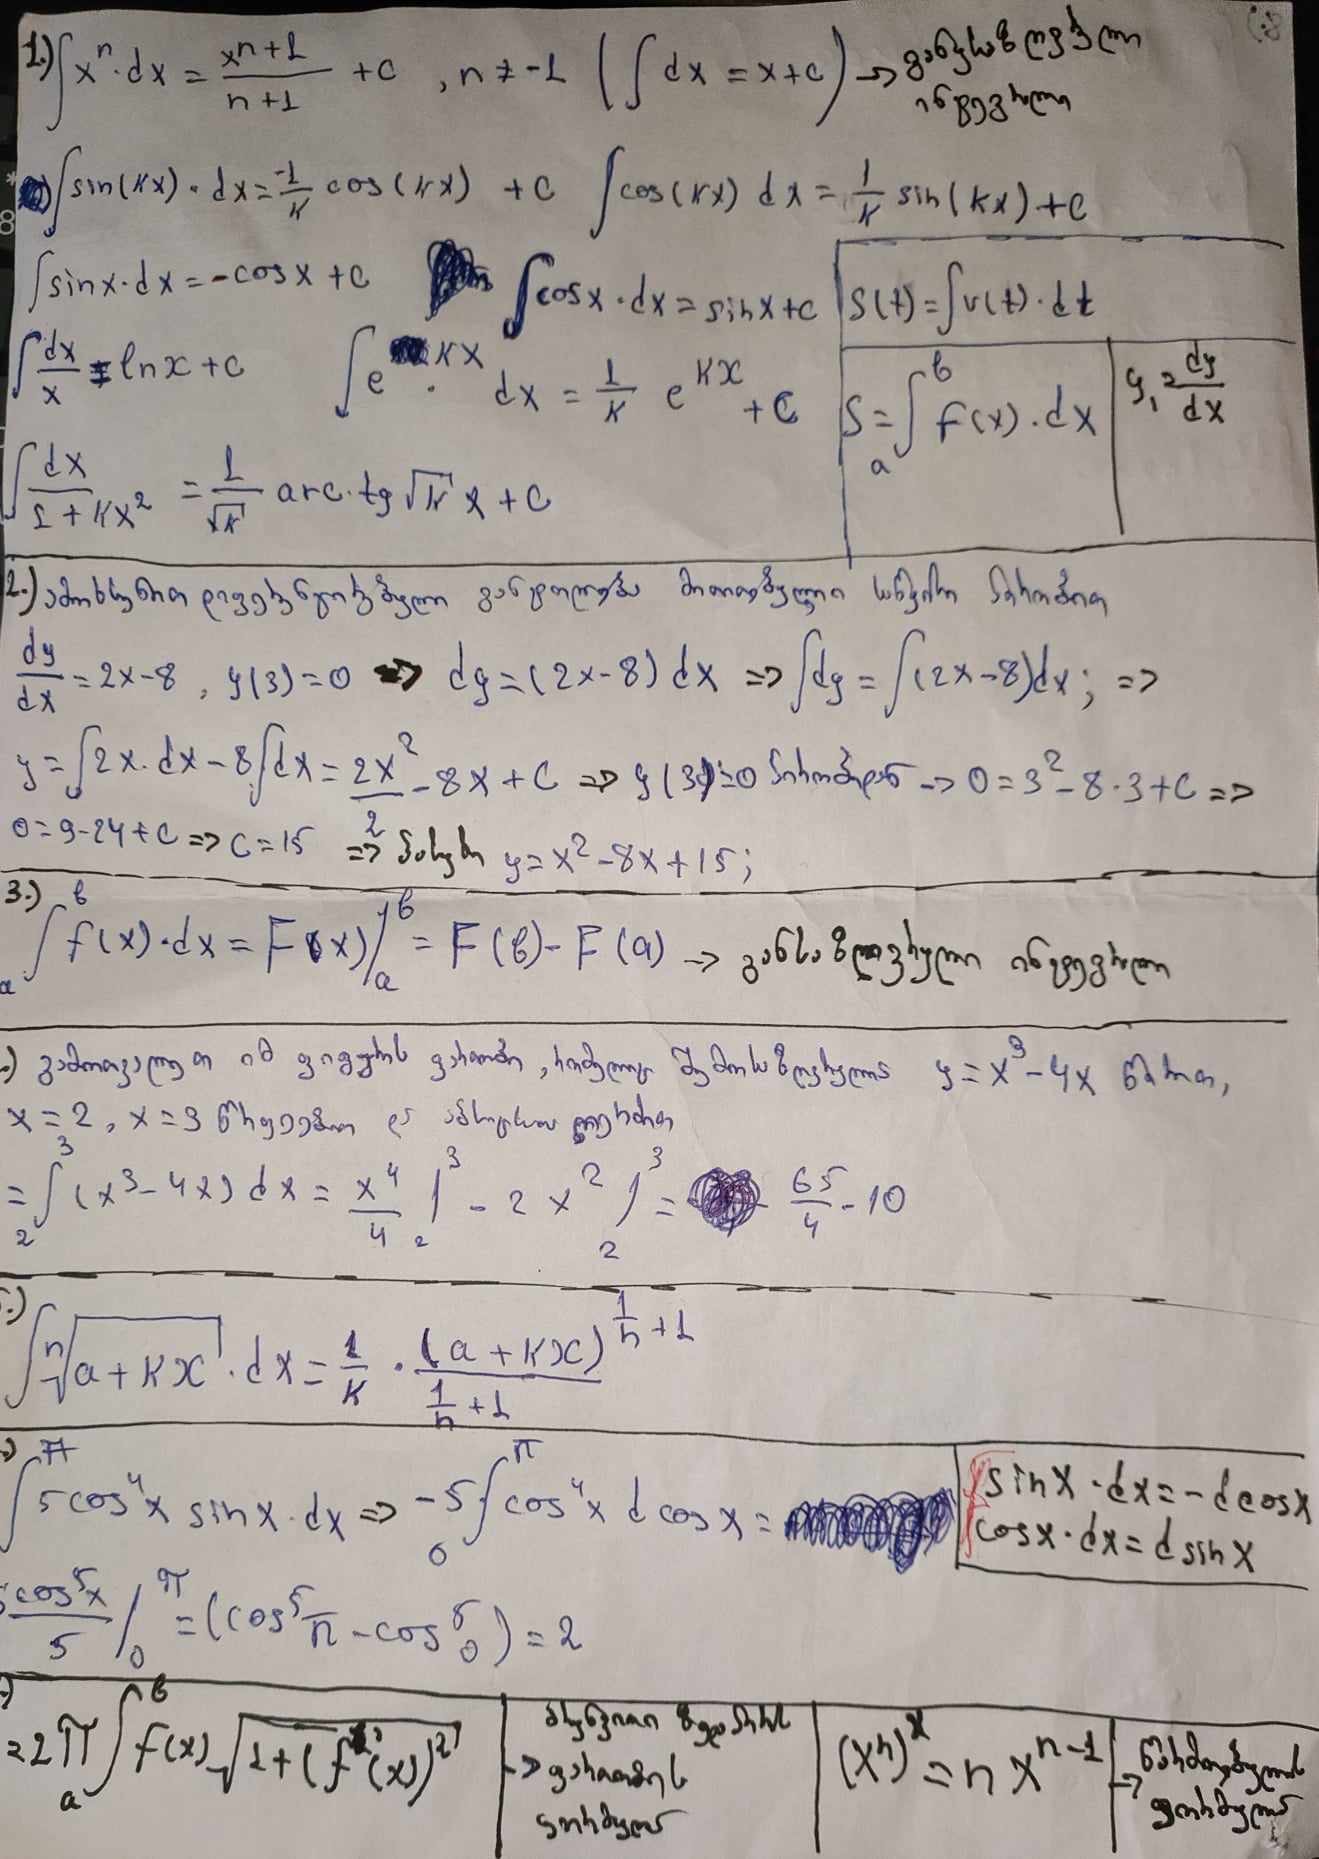 1.) ∫xⁿ·dx = xⁿ⁺¹/(n+1) + c , n ≠ -1 (∫dx = x+c) → განუსაზღვრელი
ინტეგრალი
∫sin(kx)·dx = -1/k cos(kx) + c ∫cos(kx) dx = 1/k sin(kx)+c
∫sinx·dx = -cosx + c ∫cosx·dx = sinx+c S(t)=∫v(t)·dt
∫dx/x = lnx + c ∫e^(kx)· dx = 1/k e^(kx) + c S = ₐ∫ᵇ f(x)·dx y' = dy/dx
∫dx/(1+kx²) = 1/√k arc·tg √k x + c
2.) ამოხსენით დიფერენციალური განტოლება მითითებული საწყისი პირობით
dy/dx = 2x-8 , y(3)=0 => dy=(2x-8)dx => ∫dy = ∫(2x-8)dx; =>
y=∫2x·dx-8∫dx = 2x²/2 - 8x + c => y(3)=0 პირობიდან → 0=3²-8·3+c =>
0=9-24+c => c=15 => პასუხი y=x²-8x+15;
3.) ₐ∫ᵇ f(x)·dx = F(x)/ₐᵇ = F(b)-F(a) → განსაზღვრული ინტეგრალი
.) გამოთვალეთ იმ ფიგურის ფართობი, რომელიც შემოსაზღვრულია y=x³-4x წირით,
x=2, x=3 წრფეებით და აბსცისთა ღერძით
= ₂∫³ (x³-4x) dx = x⁴/4 /₂³ - 2x² /₂³ = 65/4 - 10
.) ∫ⁿ√(a+kx) · dx = 1/k · (a+kx)^(1/n+1)/(1/n+1)
.) ∫^π 5cos⁴x sinx·dx => -5 ₀∫^π cos⁴x dcosx = sinx·dx=-dcosx
cosx·dx=dsinx
cos⁵x/5 /₀^π = (cos⁵π - cos⁵0) = 2
.) =2π ₐ∫ᵇ f(x) √(1+(f'(x))²) → ბრუნვითი ზედაპირის
ფართობის
ფორმულა
(xⁿ)' = n xⁿ⁻¹ → წარმოებულის
ფორმულა